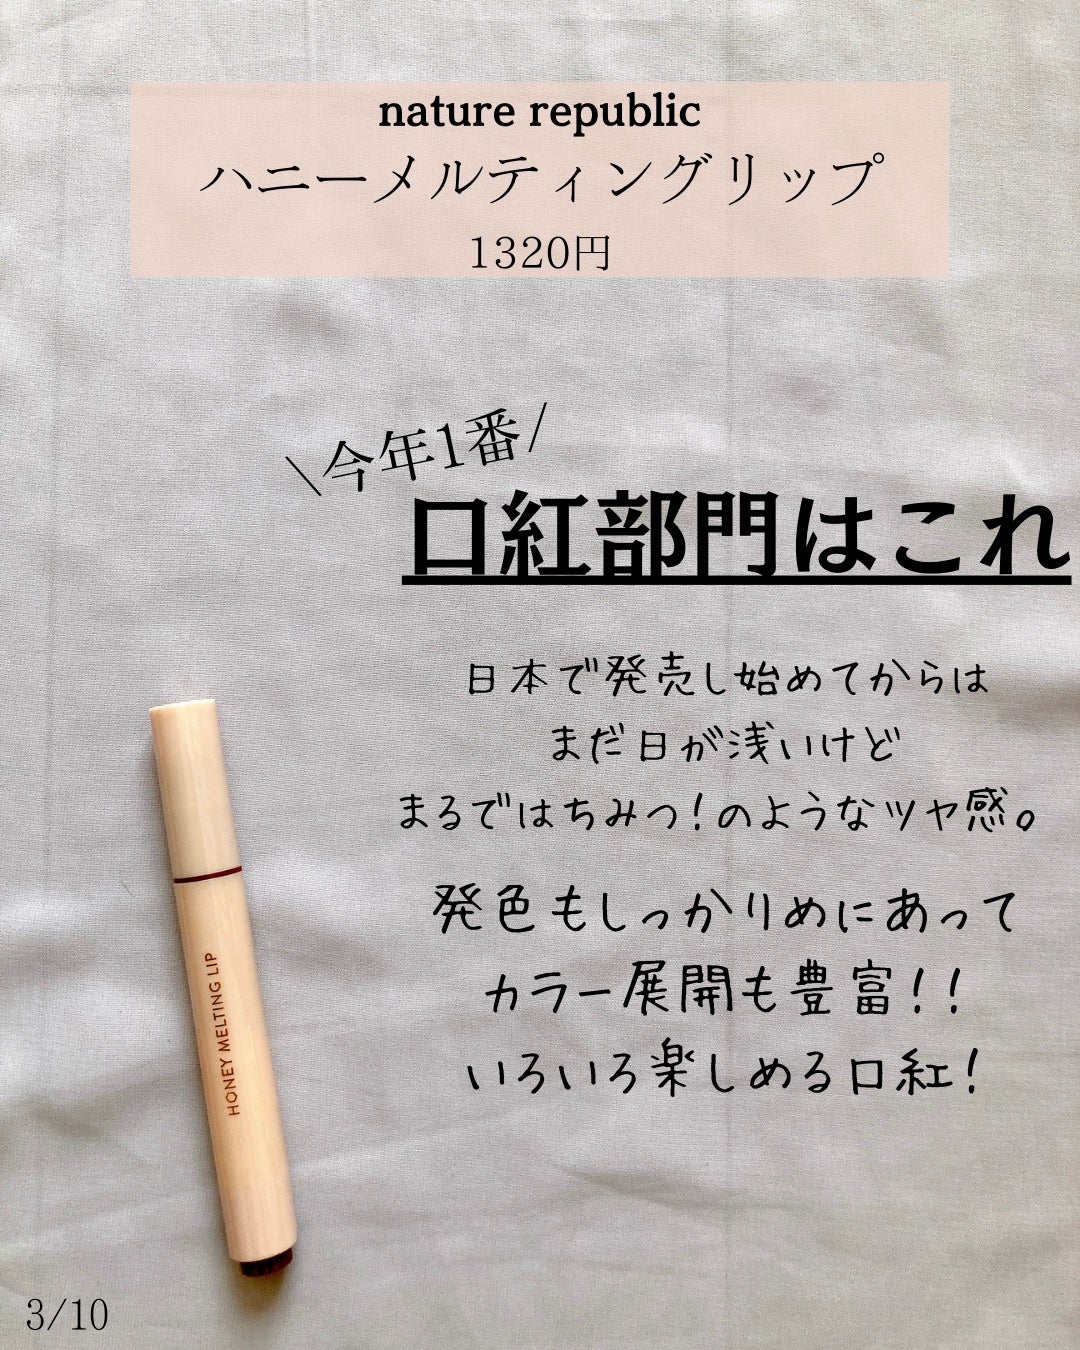 nature republic
ハニーメルティングリップ
1320円
\今年1番/
口紅部門はこれ
日本で発売し始めてからは
まだ日が浅いけど
まるではちみつ!のようなツヤ感。
発色もしっかりめにあって
カラー展開も豊富!!
いろいろ楽しめる口紅!
HONEY MELTING LIP
3/10